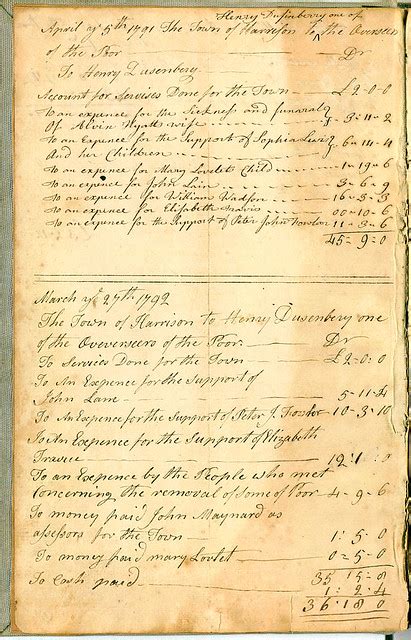 Henry Dusinberry one of
April ye 5th 1791 The Town of Harrison to ^ the Overseers
of the Poor Dr
To Henry Dusenbery
Account for Servises Done for the Town £2-0-0
To an expense for the Sickness and funaral
Of Alvin Hyatts wife 3-11-2
To an Expence for the Support of Sophia
And her Children 6-11-4
To an expence for Mary Lovelet Child 1-19-6
To an expence for John Lain 3-6-9
To an expence for William Wadson 16-3-3
To an expence for Elisabeth Travis 00-10-6
To an expence for the Support of Peter John 11-3-6
45=9=0
March ye 27th 1792
The Town of Harrison to Henry Dusenbery one
of the Oveverseers of the Poor Dr
To Servises Done for the Town £2=0:0
To An Expence for the support of
John Lane 5-11-4
To An Expence for the Support of Peter J. 10-3-10
To An Expence for the Support of Elizabeth
Travice 12:1:0
To an Expence by the People who met
Concerning the removal of Some of Poor 4-9-6
To money paid John Maynard as
assessors for the Town 1:5-0
To money paid mary Lovlet 0=5=0
To Cash paid 35 15=8
1:2:4
36:18 0